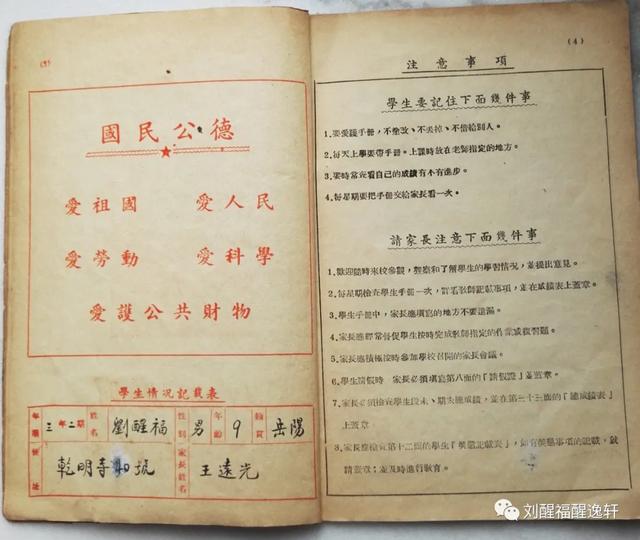 (3)
國民公德
愛祖國 愛人民
愛勞動 愛科學
愛護公共財物
學生情况記載表
年級 三年二期 姓名 劉醒福 性別 男 年齡 9 籍貫 岳陽
住址 乾明寺 號 家長姓名 王遠光
(4)
注意事項
學生要記住下面幾件事
1.要愛護手册，不塗改、不丢掉、不借給别人。
2.每天上學要帶手册。上課時放在老師指定的地方。
3.要時常查看自己的成績有不有進步。
4.每星期要把手册交給家長看一次。
請家長注意下面幾件事
1.歡迎隨時來校參觀，觀察和了解學生的學習情况，並提出意見。
2.每星期檢查學生手册一次，詳看教師記載事項，並在成績表上蓋章。
3.學生手册中，家長應填寫的地方不要遺漏。
4.家長應經常督促學生按時完成教師指定的作業或復習題。
5.家長應積極按時參加學校召開的家長會議。
6.學生請假時 家長必須填寫第八面的「請假證」並蓋章。
7.家長必須檢查學生段末、期末總成績，並在第三十三面的「總成績表」
上蓋章。
8.家長應檢查第十二面的學生「獎懲記載表」，如有獎懲事項的記載，就
請蓋章；並及時進行教育。
刘醒福醒逸轩